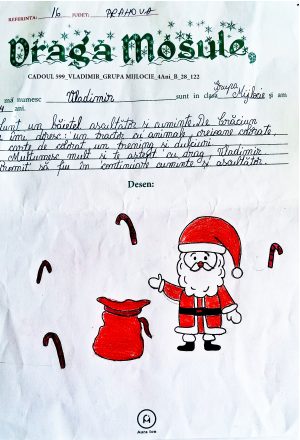 REFERINTA: 16 JUDEȚ: PRAHOVA
Dragă Moșule,
CADOUL 599_VLADIMIR_GRUPA MIJLOCIE_4Ani_B_28_122
mă numesc Vladimir sunt in clasa Grupa Mijlocie și am
4 ani.
Sunt un băiețel ascultător și cuminte. De Crăciun
îmi doresc: un tractor cu animale, creioane colorate,
carte de colorat, un trening și dulciuri.
Mulțumesc mult și te aștept cu drag, Vladimir
Promit să fiu în continuare cuminte și ascultător.
Desen:
Aura Ion